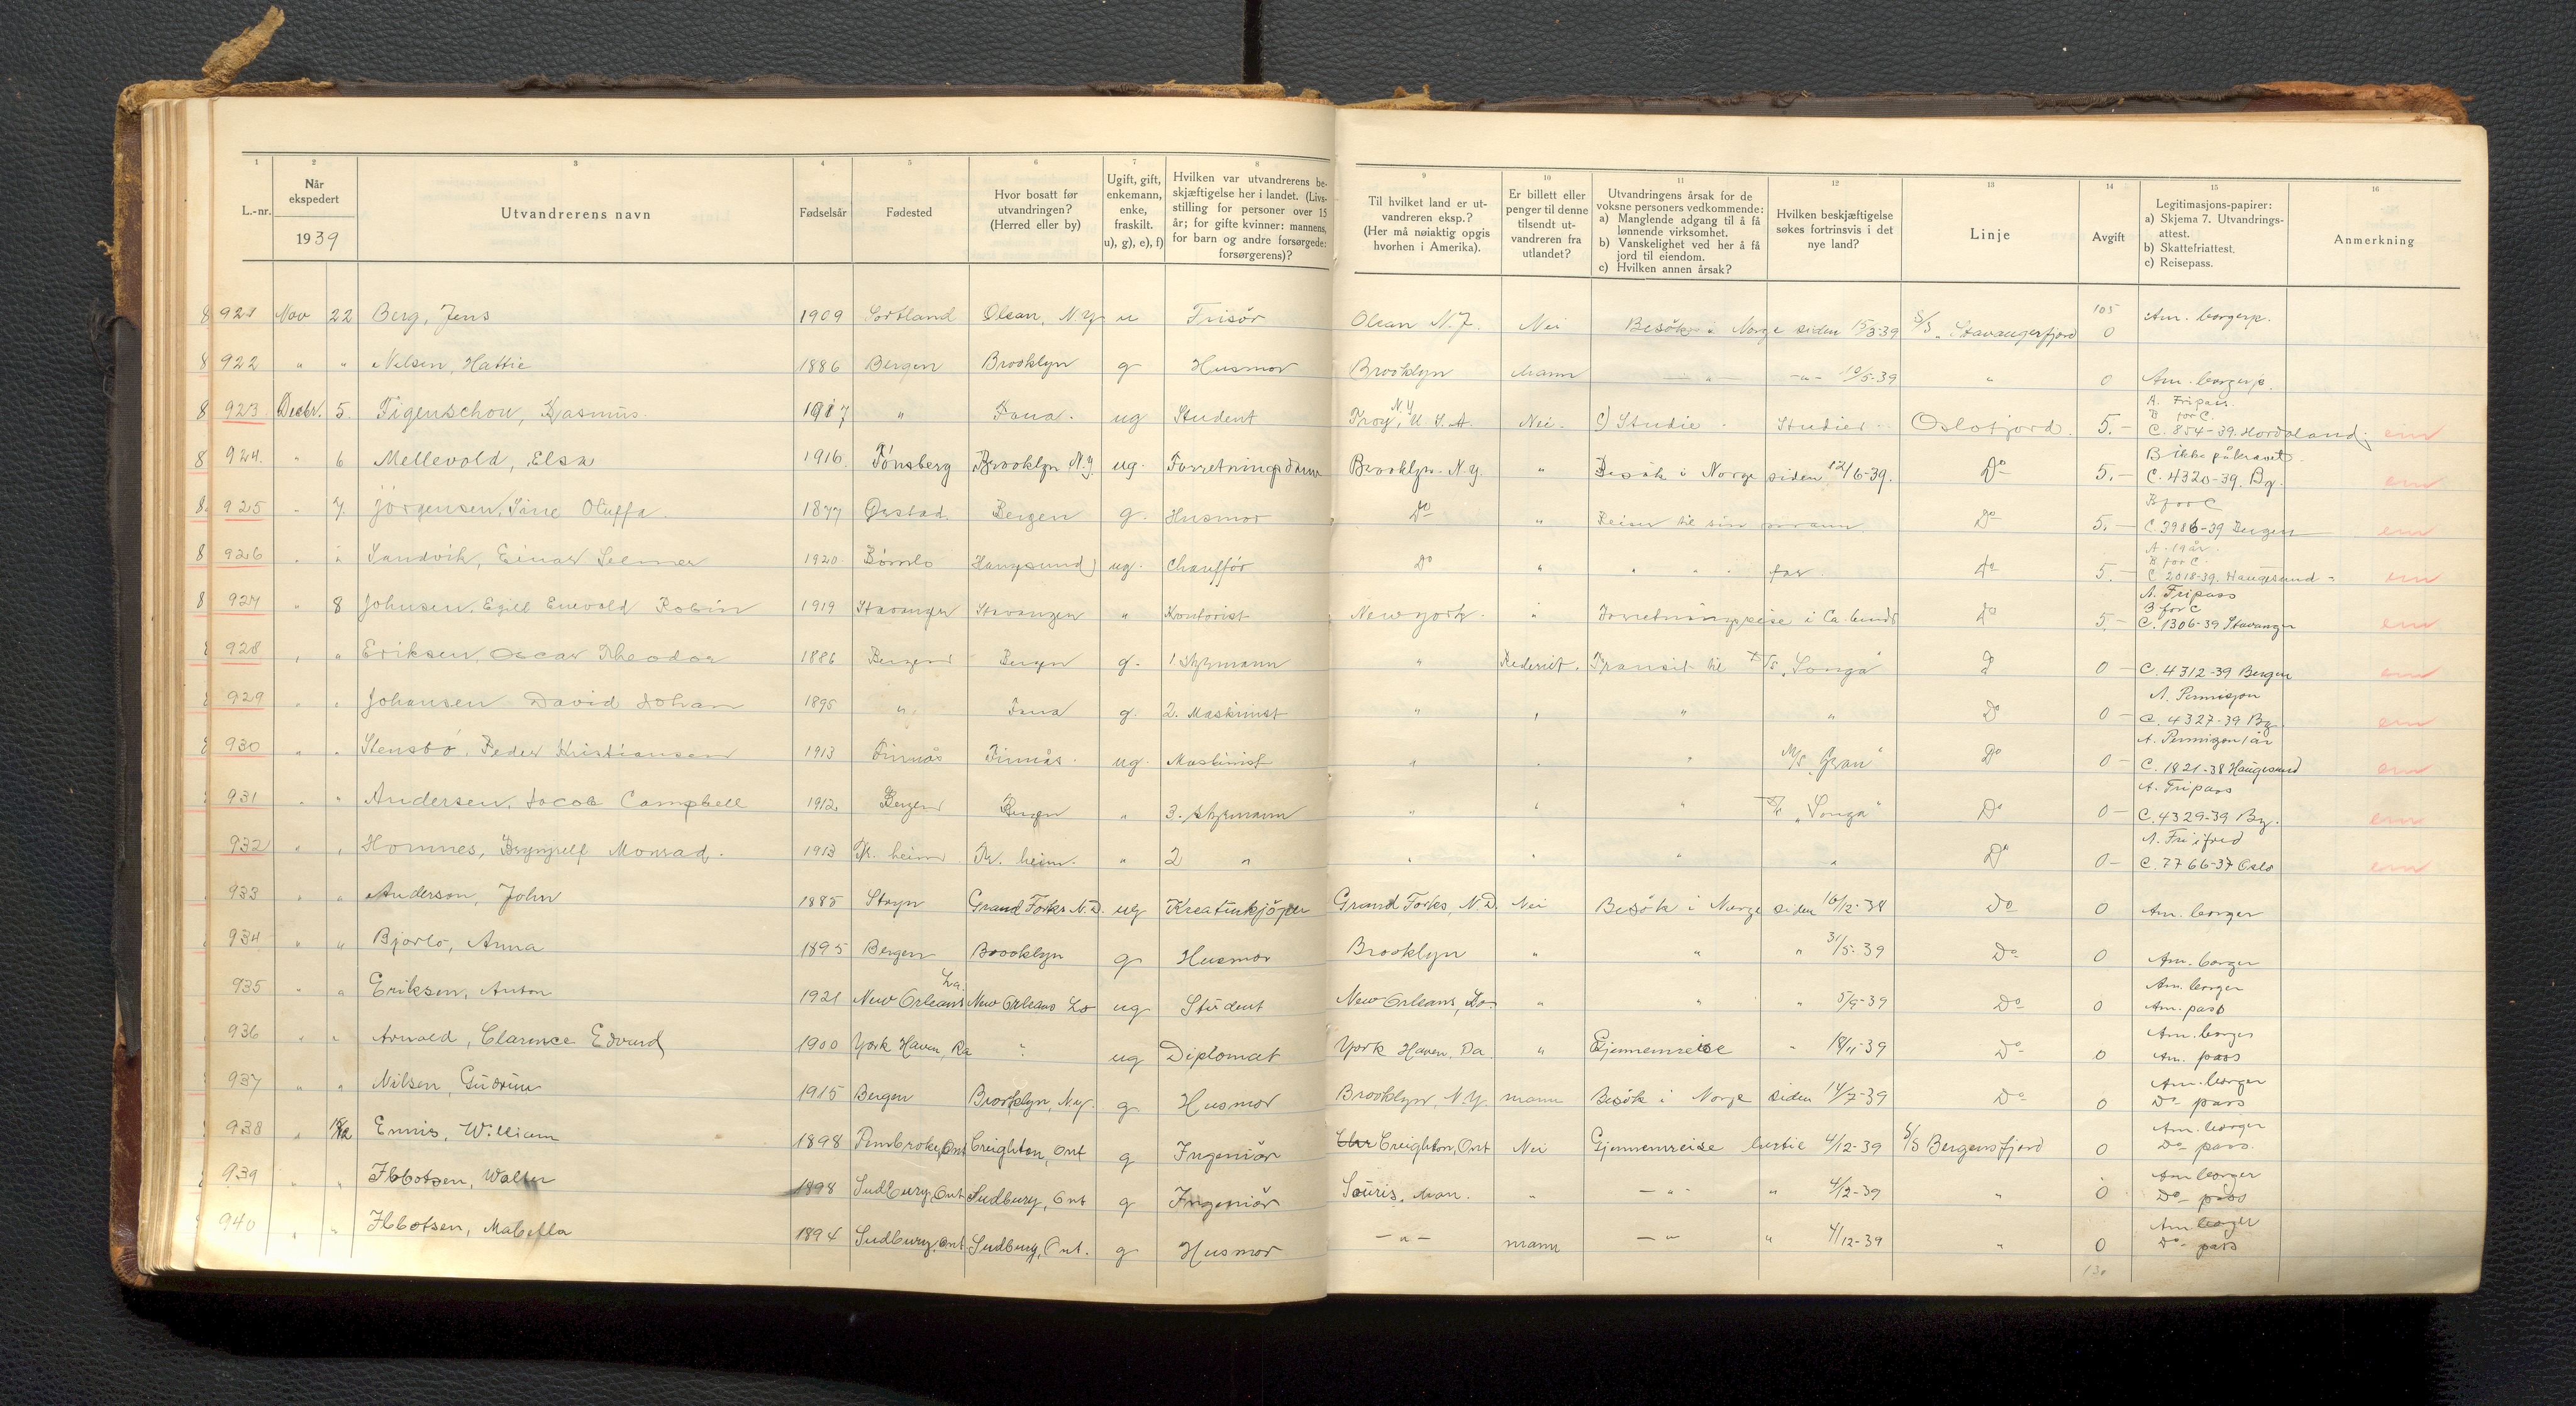 1 2 3 4 5 6 7 8 9 10 11 12 13 14 15 16
L.-nr. | Når ekspedert 1939 | Utvandrerens navn | Fødselsår | Fødested | Hvor bosatt før utvandringen? (Herred eller by) | Ugift, gift, enkemann, enke, fraskilt. u), g), e), f) | Hvilken var utvandrerens beskjæftigelse her i landet. (Livsstilling for personer over 15 år; for gifte kvinner: mannens, for barn og andre forsørgede: forsørgerens)? | Til hvilket land er utvandreren eksp.? (Her må nøiaktig opgis hvorhen i Amerika). | Er billett eller penger til denne tilsendt utvandreren fra utlandet? | Utvandringens årsak for de voksne personers vedkommende: a) Manglende adgang til å få lønnende virksomhet. b) Vanskelighet ved her å få jord til eiendom. c) Hvilken annen årsak? | Hvilken beskjæftigelse søkes fortrinsvis i det nye land? | Linje | Avgift | Legitimasjons-papirer: a) Skjema 7. Utvandringsattest. b) Skattefriattest. c) Reisepass. | Anmerkning
105
8 921 Nov 22 Berg, Jens 1909 Sortland Olean, N.Y. u Frisör Olean N.J. Nei Besök i Norge siden 15/3-39 S/S "Stavangerfjord 0 Am. borgerp.
8 922 " " Nelsen, Hattie 1886 Bergen Brooklyn g Husmor Brooklyn Mann —"— -"- 10/5-39 " 0 Am. borgerp.
8 923 Decbr. 5. Figenschou, Rasmus. 1917 " Fana. ug Student Troy, N.Y. U.S.A. Nei. c) Studie. Studier Oslofjord. 5.- A. Fripass. B for C. C. 854-39. Hordaland. em
8 924. " 6 Mellevold, Elsa 1916. Tönsberg Brooklyn N.Y. ug. Forretningsdame Brooklyn. N.Y. " Besök i Norge siden 12/6-39. Do 5.- B ikke påkrævet. C. 4320-39. Bg. em
8 925 " 7. Jörgensen, Sine Oluffa 1877 Örstad. Bergen g. Husmor Do " Reiser til sin mann Do 5.- B for C C. 3986-39 Bergen em
8 926 " " Sandvik, Einar Selmer 1920. Bömlo Haugesund ug. Chaufför Do " " " " far. Do 5.- A. 19 år. B for C. C 2018-39. Haugesund - em
8 927 " 8 Johnsen, Egill Enevold Robin 1919 Stavanger Stavanger " Kontorist New York. " Forretningsreise i Do 5.- A. Fripass B for C C. 1306-39 Stavanger em
928 " " Eriksen, Oscar Theodor 1886 Bergen Bergen g. 1 styrmann " Rederiet. Transit til T/S "Songa" D 0 - C. 4312-39 Bergen em
929 " " Johansen David Johan 1895 " Fana g. 2. Maskinist " " " " Do 0 - A. Permisjon C. 4327-39 Bg. em
930 " " Stensbö, Peder Kristiansen 1913 Finnås Finnås. ug. Maskinist " " " M/S "Gran" Do 0 - A. Permisjon 1 år C. 1821-38 Haugesund em
931 " " Andersen, Jacob Campbell 1912. Bergen Bergen " 3. styrmann " " " "Songa" Do 0 - A. Fripass C. 4329-39 Bg. em
932 " " Homnes, Brynjulf Monrad. 1913 Tr. heim. Tr. heim. " 2 " " " " " Do 0 - A. Fri ifred C. 7766-37 Oslo em
933 " " Anderson, John 1885 Stryn Grand Forks N.D. ug Kreaturkjöper Grand Forks, N.D. Nei Besök i Norge siden 16/12-38 Do 0 Am. borger
934 " " Bjorlo, Anna 1895 Bergen Brooklyn g Husmor Brooklyn " " " 31/5-39 Do 0 Am. borger
935 " " Eriksen, Anton 1921 New Orleans La. New Orleans La ug Student New Orleans, La. " " " 5/9-39 Do 0 Am. borger Am. pass
936 " " Arnold, Clarence Edvard 1900 York Haven, Pa " ug Diplomat York Haven, Pa " Gjennemreise " 18/11-39 Do 0 Am. borger Am. pass
937 " " Nilsen, Gudrun 1915 Bergen Brooklyn, N.Y. g Husmor Brooklyn, N.Y. mann Besök i Norge siden 14/7-39 Do 0 Am. borger Do pass
938 " Ennis, William 1898 Pembroke, Ont Creighton, Ont g Ingeniör Creighton, Ont Nei Gjennemreise hertil 4/12-39 S/S Bergensfjord 0 Am. borger Do pass.
939 " " Ibbotsen, Walter 1898 Sudbury, Ont Sudbury, Ont g Ingeniör Souris, Man. " —"— " 4/12-39 " 0 Am borger Do pass
940 " " Ibbotsen, Mabella 1894 Sudbury, Ont Sudbury, Ont. g Husmor —"— mann —"— " 4/12-39 " 0 Am borger Do pass
130